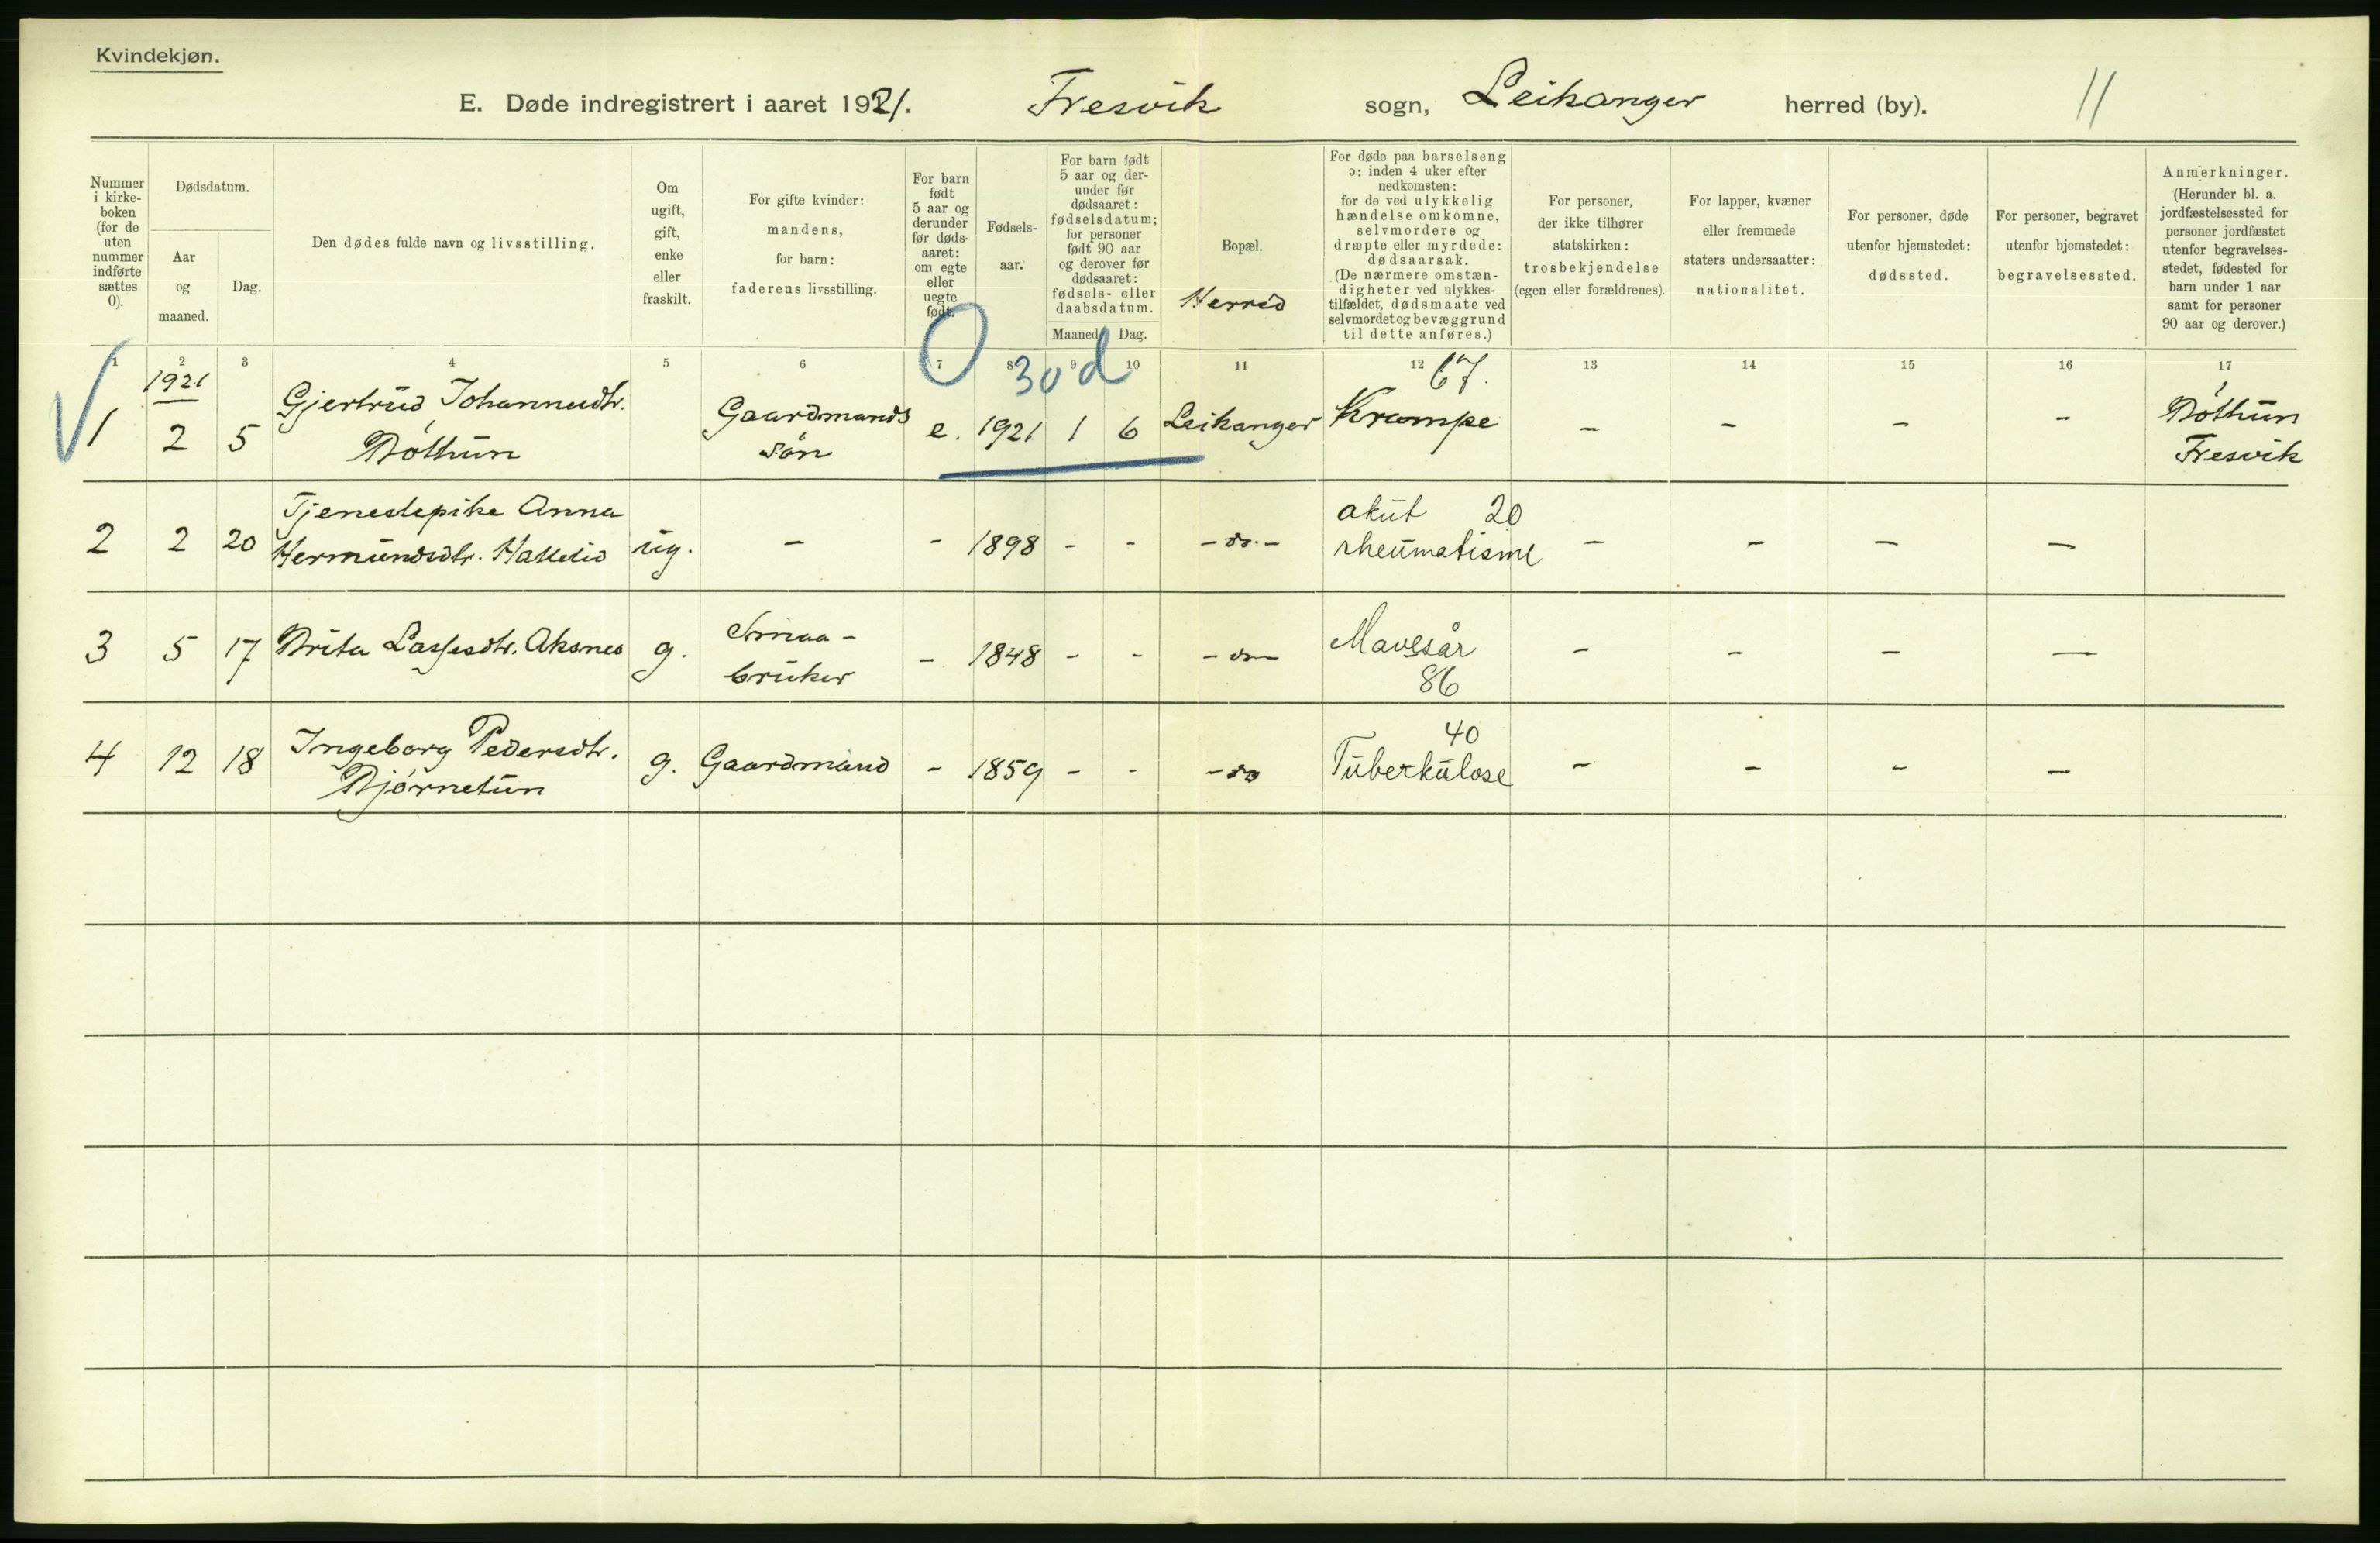 Kvindekjøn.
E. Døde indregistrert i aaret 1921. Fresvik sogn, Leikanger herred (by). 11
Nummer i kirke-boken (for de uten nummer indførte sættes 0).
Dødsdatum.
Aar og maaned.
Dag.
Den dødes fulde navn og livsstilling.
Om ugift, gift, enke eller fraskilt.
For gifte kvinder: mandens, for barn: faderens livsstilling.
For barn født 5 aar og derunder før døds-aaret: om egte eller uegte født.
Fødsels-aar.
For barn født 5 aar og der-under før dødsaaret: fødselsdatum; for personer født 90 aar og derover før dødsaaret: fødsels- eller daabsdatum.
Maaned. Dag.
Bopæl.
Herred
For døde paa barselseng ɔ: inden 4 uker efter nedkomsten: for de ved ulykkelig hændelse omkomne, selvmordere og dræpte eller myrdede: dødsaarsak. (De nærmere omstæn-digheter ved ulykkes-tilfældet, dødsmaate ved selvmordet og bevæggrund til dette anføres.)
For personer, der ikke tilhører statskirken: trosbekjendelse (egen eller forældrenes).
For lapper, kvæner eller fremmede staters undersaatter: nationalitet.
For personer, døde utenfor hjemstedet: dødssted.
For personer, begravet utenfor hjemstedet: begravelsessted.
Anmerkninger. (Herunder bl. a. jordfæstelsessted for personer jordfæstet utenfor begravelses-stedet, fødested for barn under 1 aar samt for personer 90 aar og derover.)
1 2 3 4 5 6 7 8 9 10 11 12 13 14 15 16 17
1921 0 30 d 67.
1 2 5 Gjertrud Johannesdtr. Bøthun Gaardmands søn e. 1921 1 6 Leikanger Krampe - - - - Bøthun Fresvik
2 2 20 Tjenestepike Anna Hermundsdtr. ug. - - 1898 - - - do. - akut rheumatisme 20 - - - -
3 5 17 Brita Lassesdtr. Aksnes g. Smaa-bruker - 1848 - - - do - Mavesår 86 - - - -
4 12 18 Ingeborg Pedersdtr. Bjørnetun g. Gaardmand - 1859 - - - do 40 Tuberkulose - - - -